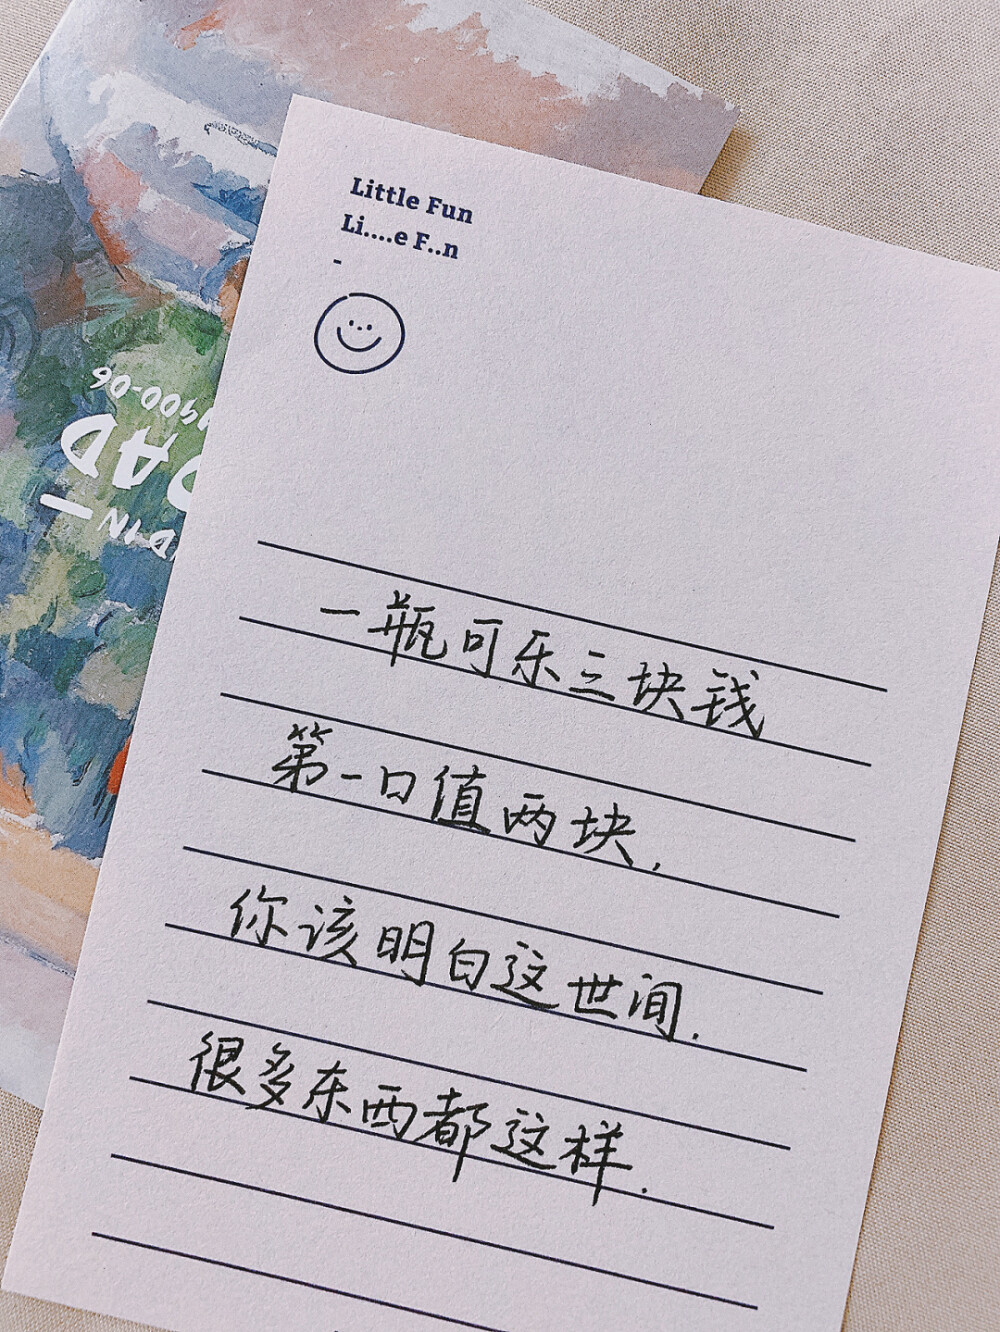 Little Fun
Li....e F..n
-
一瓶可乐三块钱
第一口值两块,
你该明白这世间.
很多东西都这样.